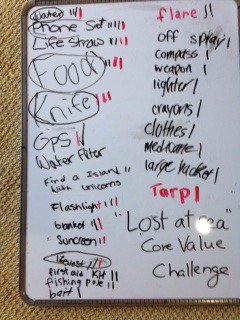 water
Phone Sat
Life Straw
Food
Knife
GPS
Water Filter
Find a Island
with unicorns
Flashlight
blanket
Suncreen
first aid kit
fishing pole
bait
flare
off spray
compass
weapon
lighter
crayons
clothes
medicare
large
Tarp
"Lost at sea"
Core Value
Challenge